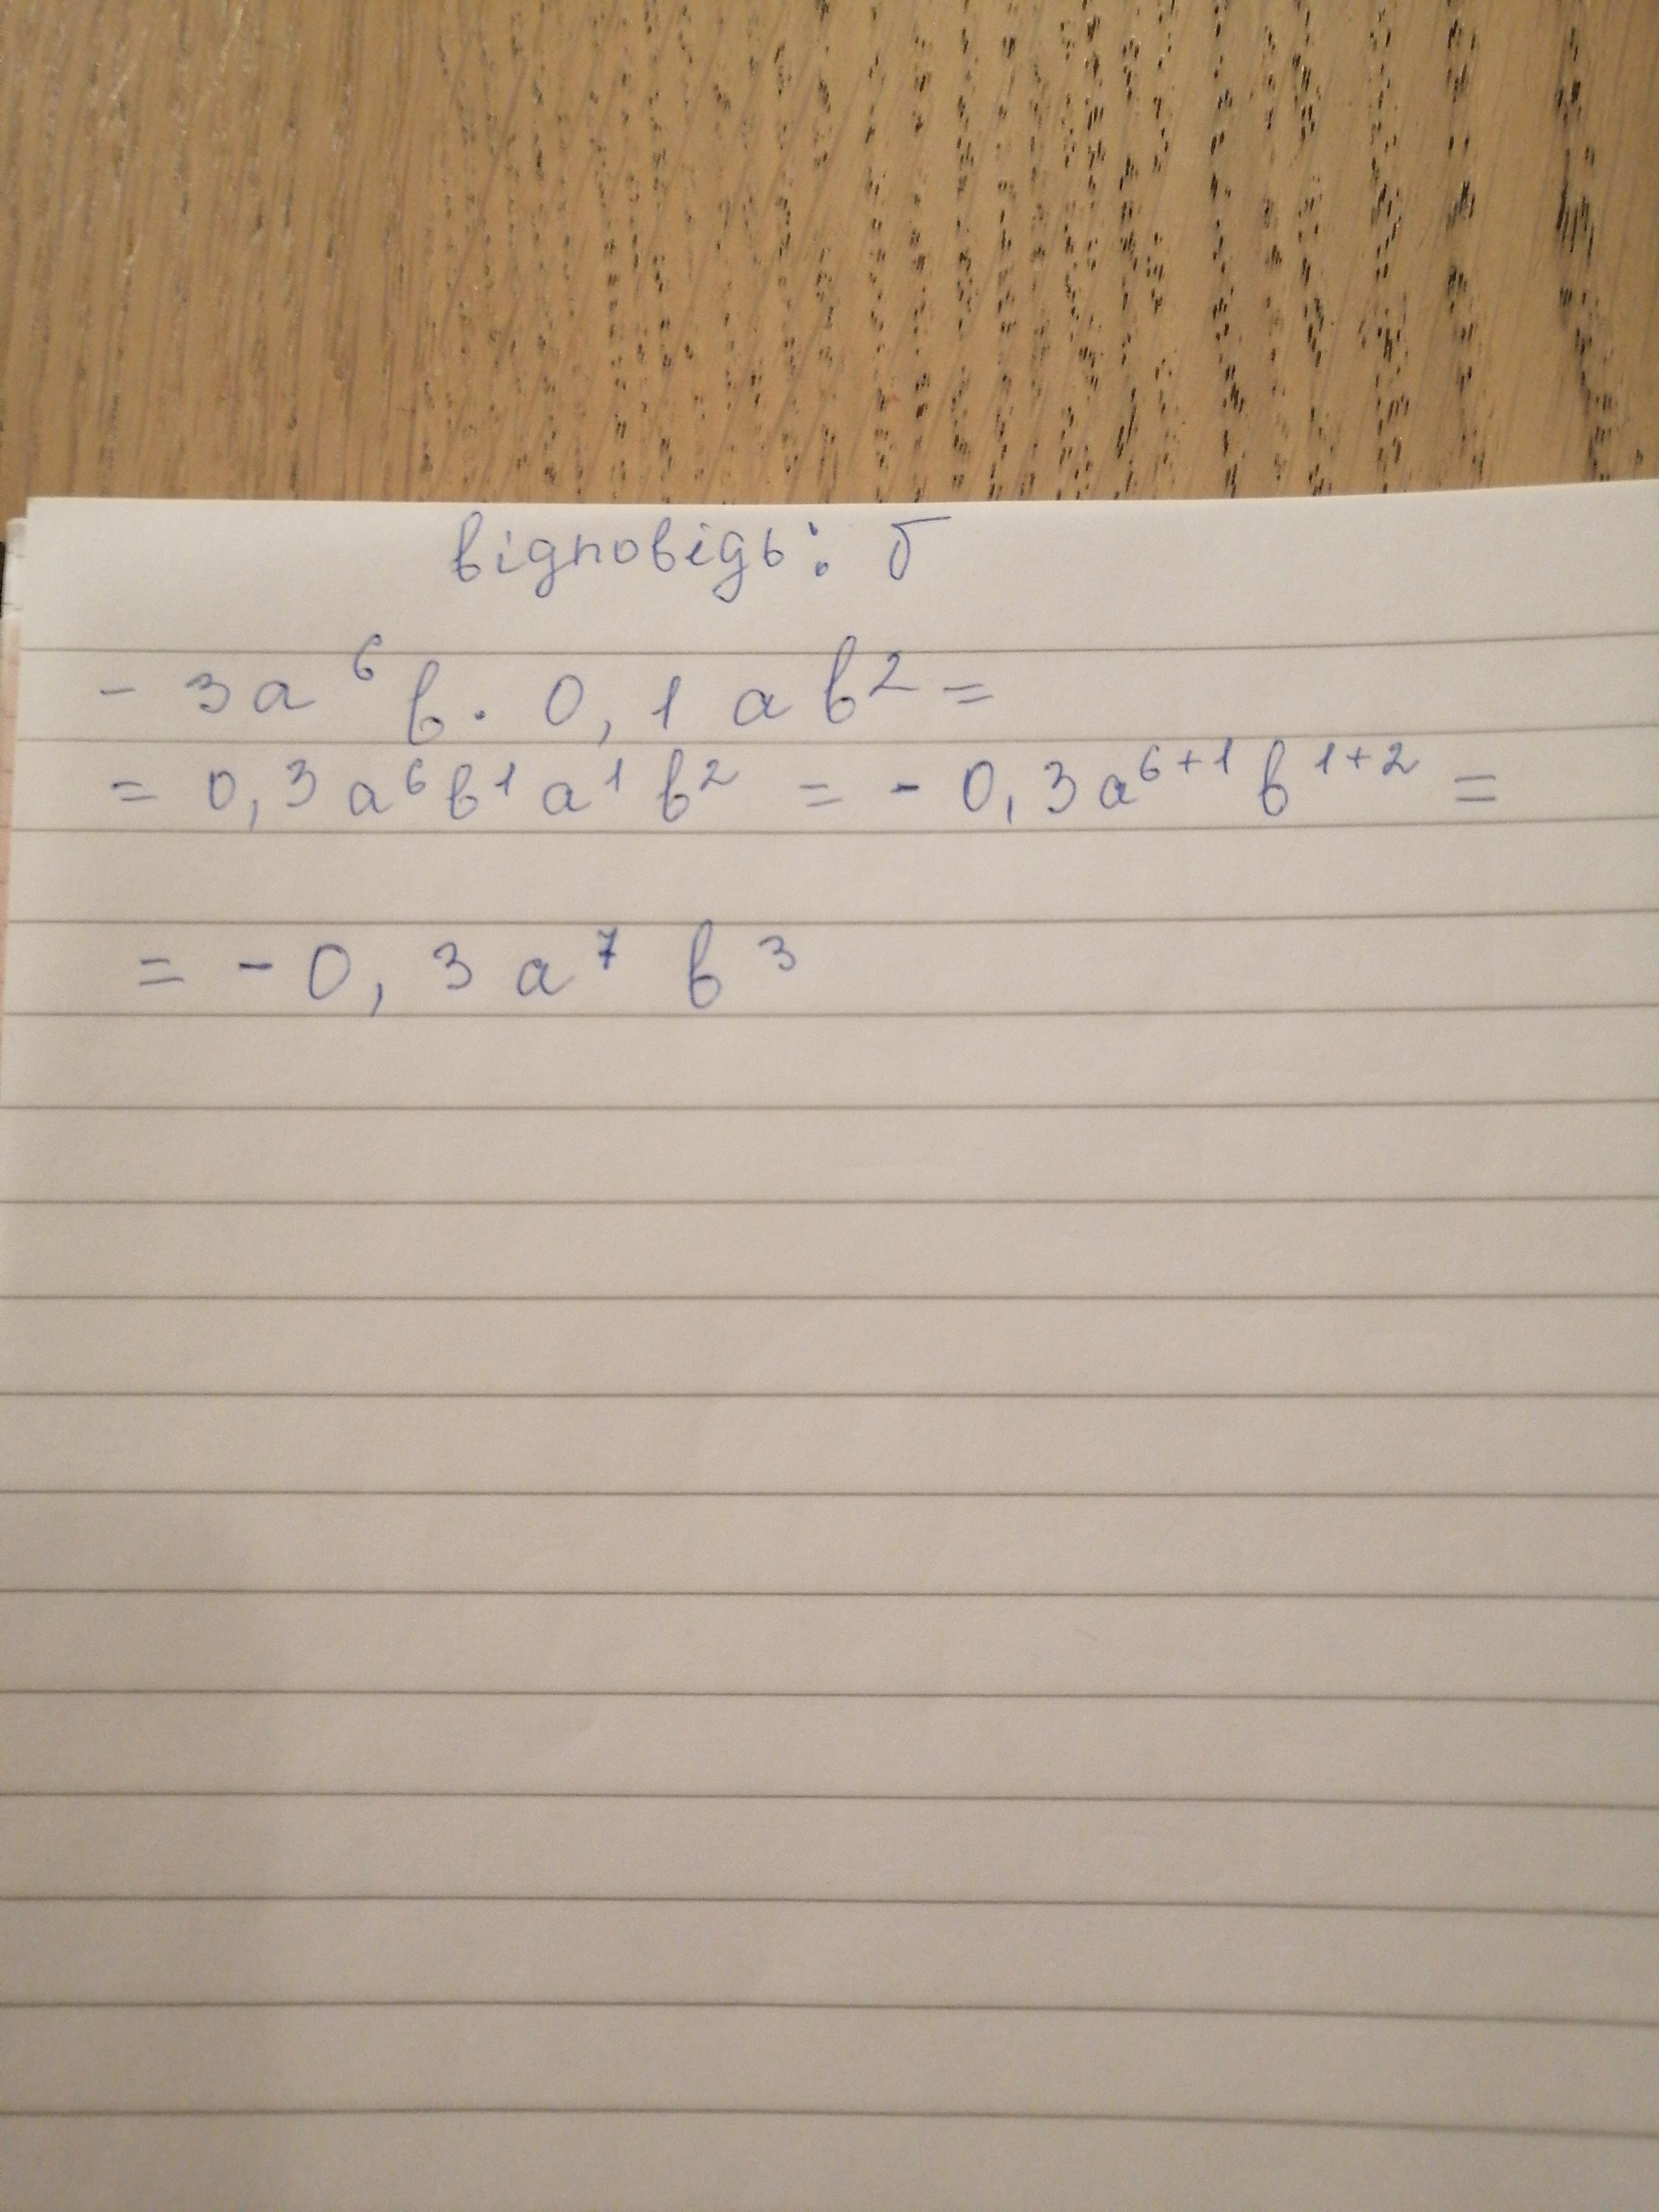 відповідь: б
- 3a⁶b · 0,1 ab² =
= 0,3a⁶b¹a¹b² = - 0,3a⁶⁺¹b¹⁺² =
= - 0,3a⁷b³